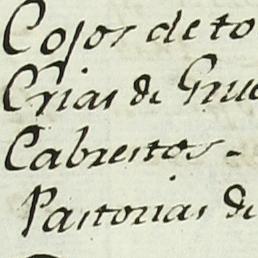 Cojos de to
Crias de Grue
Cabrestos -
Pastorias de